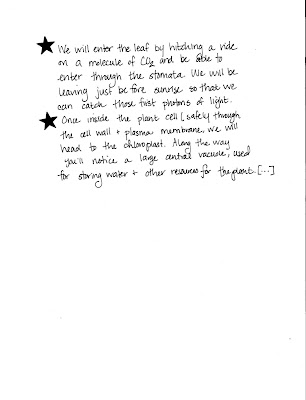 ★ We will enter the leaf by hitching a ride
on a molecule of CO₂ and be able to
enter through the stomata. We will be
leaving just before sunrise so that we
can catch those first photons of light.
★ Once inside the plant cell (safely through
the cell wall + plasma membrane, we will
head to the chloroplast. Along the way
you'll notice a large central vacuole, used
for storing water + other resources for the plant. [...]